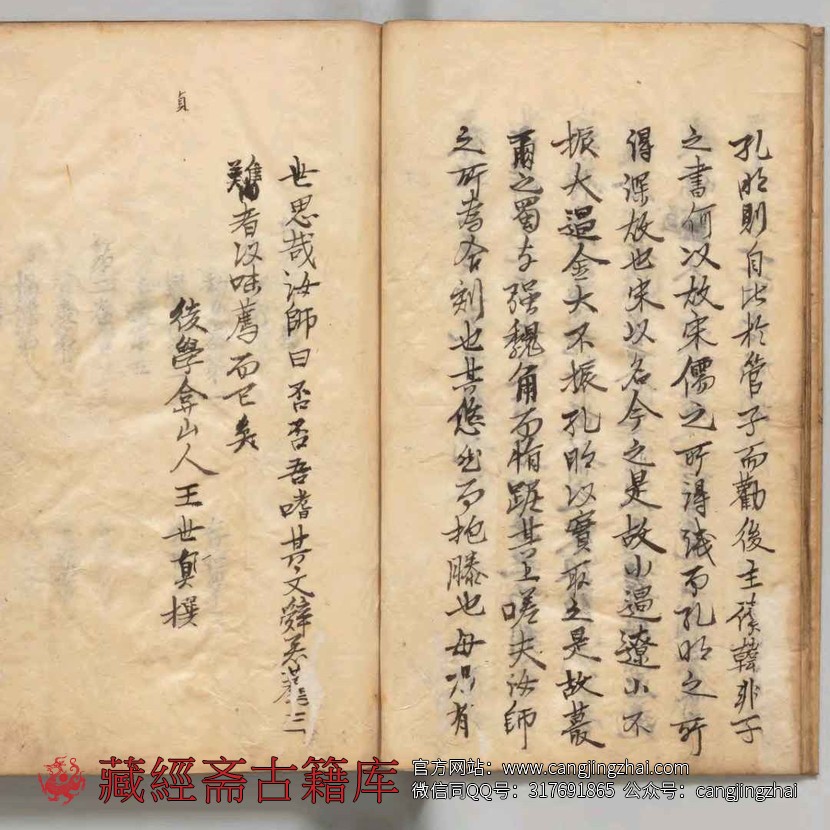 孔明則自比於管子而勸後主讀韓非子
之書何以故宋儒之所得淺而孔明之所
得深故也宋以名今之是故小遇遼小不
振大遇金大不振孔明以實取之是故蕞
爾之蜀與强魏角而恒踞其上嗟夫汝師
之所為合刻也其悠然而抱膝也毋乃有
世思哉汝師曰否否吾嗜其文辭
三
難者以味薦而已矣
後學弇山人王世貞撰
貞
藏經斋古籍库
官方网站：www.cangjingzhai.com
微信同QQ号：317691865 公众号：cangjingzhai